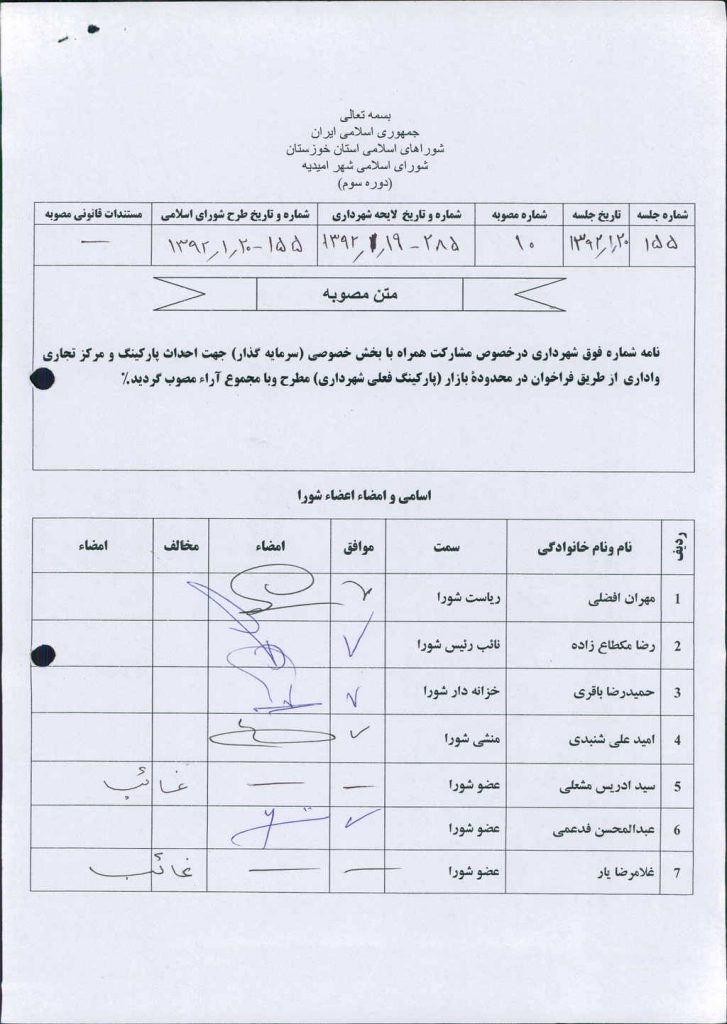 بسمه تعالی
جمهوری اسلامی ایران
شوراهای اسلامی استان خوزستان
شورای اسلامی شهر امیدیه
(دوره سوم)
شماره جلسه تاریخ جلسه شماره مصوبه شماره و تاریخ لایحه شهرداری شماره و تاریخ طرح شورای اسلامی مستندات قانونی مصوبه
۱۵۵ ۱۳۹۲/۱/۲۰ ۱۰ ۲۸۵ - ۱۳۹۲/۱/۱۹ ۱۵۵ - ۱۳۹۲/۱/۲۰ —
متن مصوبه
نامه شماره فوق شهرداری درخصوص مشارکت همراه با بخش خصوصی (سرمایه گذار) جهت احداث پارکینگ و مرکز تجاری
واداری از طریق فراخوان در محدودۀ بازار (پارکینگ فعلی شهرداری) مطرح وبا مجموع آراء مصوب گردید.٪
اسامی و امضاء اعضاء شورا
ردیف نام ونام خانوادگی سمت موافق امضاء مخالف امضاء
1 مهران افضلی ریاست شورا
2 رضا مکطاع زاده نائب رئیس شورا ✓
3 حمیدرضا باقری خزانه دار شورا ✓
4 امید علی شنبدی منشی شورا ✓
5 سید ادریس مشعلی عضو شورا — — غائب
6 عبدالمحسن فدعمی عضو شورا ✓
7 غلامرضا یار عضو شورا — — غائب